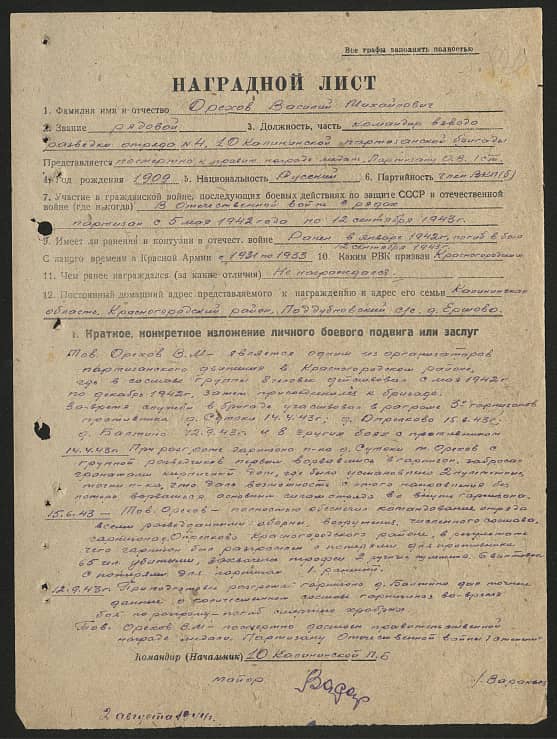 Все графы заполнять полностью
НАГРАДНОЙ ЛИСТ
1. Фамилия имя и отчество Орехов Василий Михайлович
2. Звание рядовой 3. Должность, часть командир взвода
разведки отряда №4, 10 Калининской партизанской бригады
Представляется посмертно к правит. награде медал. Партизану О.В. 1 ст.
4. Год рождения 1909 5. Национальность Русский 6. Партийность член ВКП(б)
7. Участие в гражданской войне, последующих боевых действиях по защите СССР и отечественной
войне (где и когда) В Отечественной войне в рядах
партизан с 5 мая 1942 года по 12 сентября 1943 г.
9. Имеет ли ранения и контузии в отечест. войне Ранен в январе 1942 г., погиб в бою
12 сентября 1943 г.
С какого времени в Красной Армии с 1931 по 1933 10. Каким РВК призван Красногородским
11. Чем ранее награждался (за какие отличия) Не награждался.
12. Постоянный домашний адрес представляемого к награждению и адрес его семьи Калининская
область, Красногородский район, Поддубновский с/с. д. Ершова.
1. Краткое, конкретное изложение личного боевого подвига или заслуг
Тов. Орехов В.М – является одним из организаторов
партизанского движения в Красногородском районе,
где в составе группы 8 человек действовал с мая 1942 г.
по декабрь 1942 г. затем присоединился к бригаде.
Во-время службы в бригаде участвовал в разгроме 3х гарнизонов
противника д. Сутоки 14.4.43 г; д. 15.6.43 г;
д. 12.9.43 г. и в других боях с противником
14.4.43 г. При разгроме гарнизона п-ка д. Сутоки т. Орехов с
группой разведчиков первым ворвавшись в гарнизон, забросал
гранатами кирпичный дом, где были установлены 2 пулеметные
точки п-ка, что дало возможность с этого направления без
потерь ворваться основным силам отряда во внутрь гарнизона.
15.6.43 – Тов. Орехов – полностью обеспечил командование отряда
всеми разведданными: обороны, вооружения, численного состава,
гарнизона Красногородского района, в результате
чего гарнизон был разгромлен с потерями для противника
65 чел. убитыми, захвачены трофеи 2 ручных пулемета, 6 винтовок
с потерями для партизан – 1 ранен.
12.9.43 г. разгрома гарнизона д. дал точные
данные о количественном составе гарнизона во-время
боя по разгрому – погиб смертью храбрых.
Тов. Орехов В.М – посмертно достоин правительственной
награде медали „Партизану Отечественной войны 1 степени“
Командир (Начальник) 10 Калининской П.Б
майор
2 августа